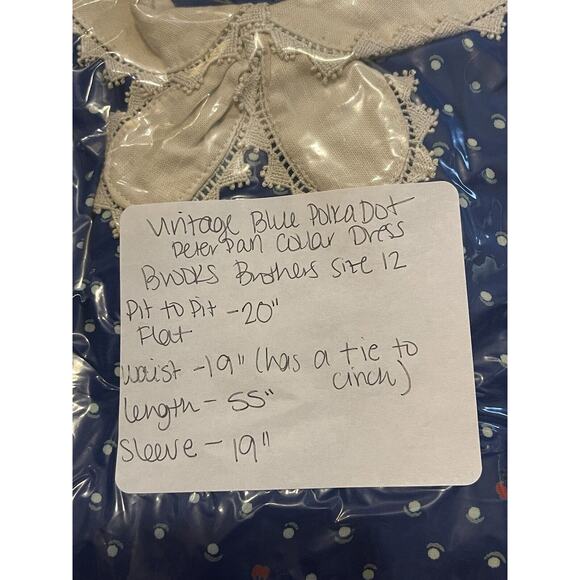 Vintage Blue Polka Dot
Peter Pan Collar Dress
Brooks Brothers size 12
Pit to Pit - 20"
Flat
Waist - 19" (has a tie to
cinch)
Length - 55"
Sleeve - 19"